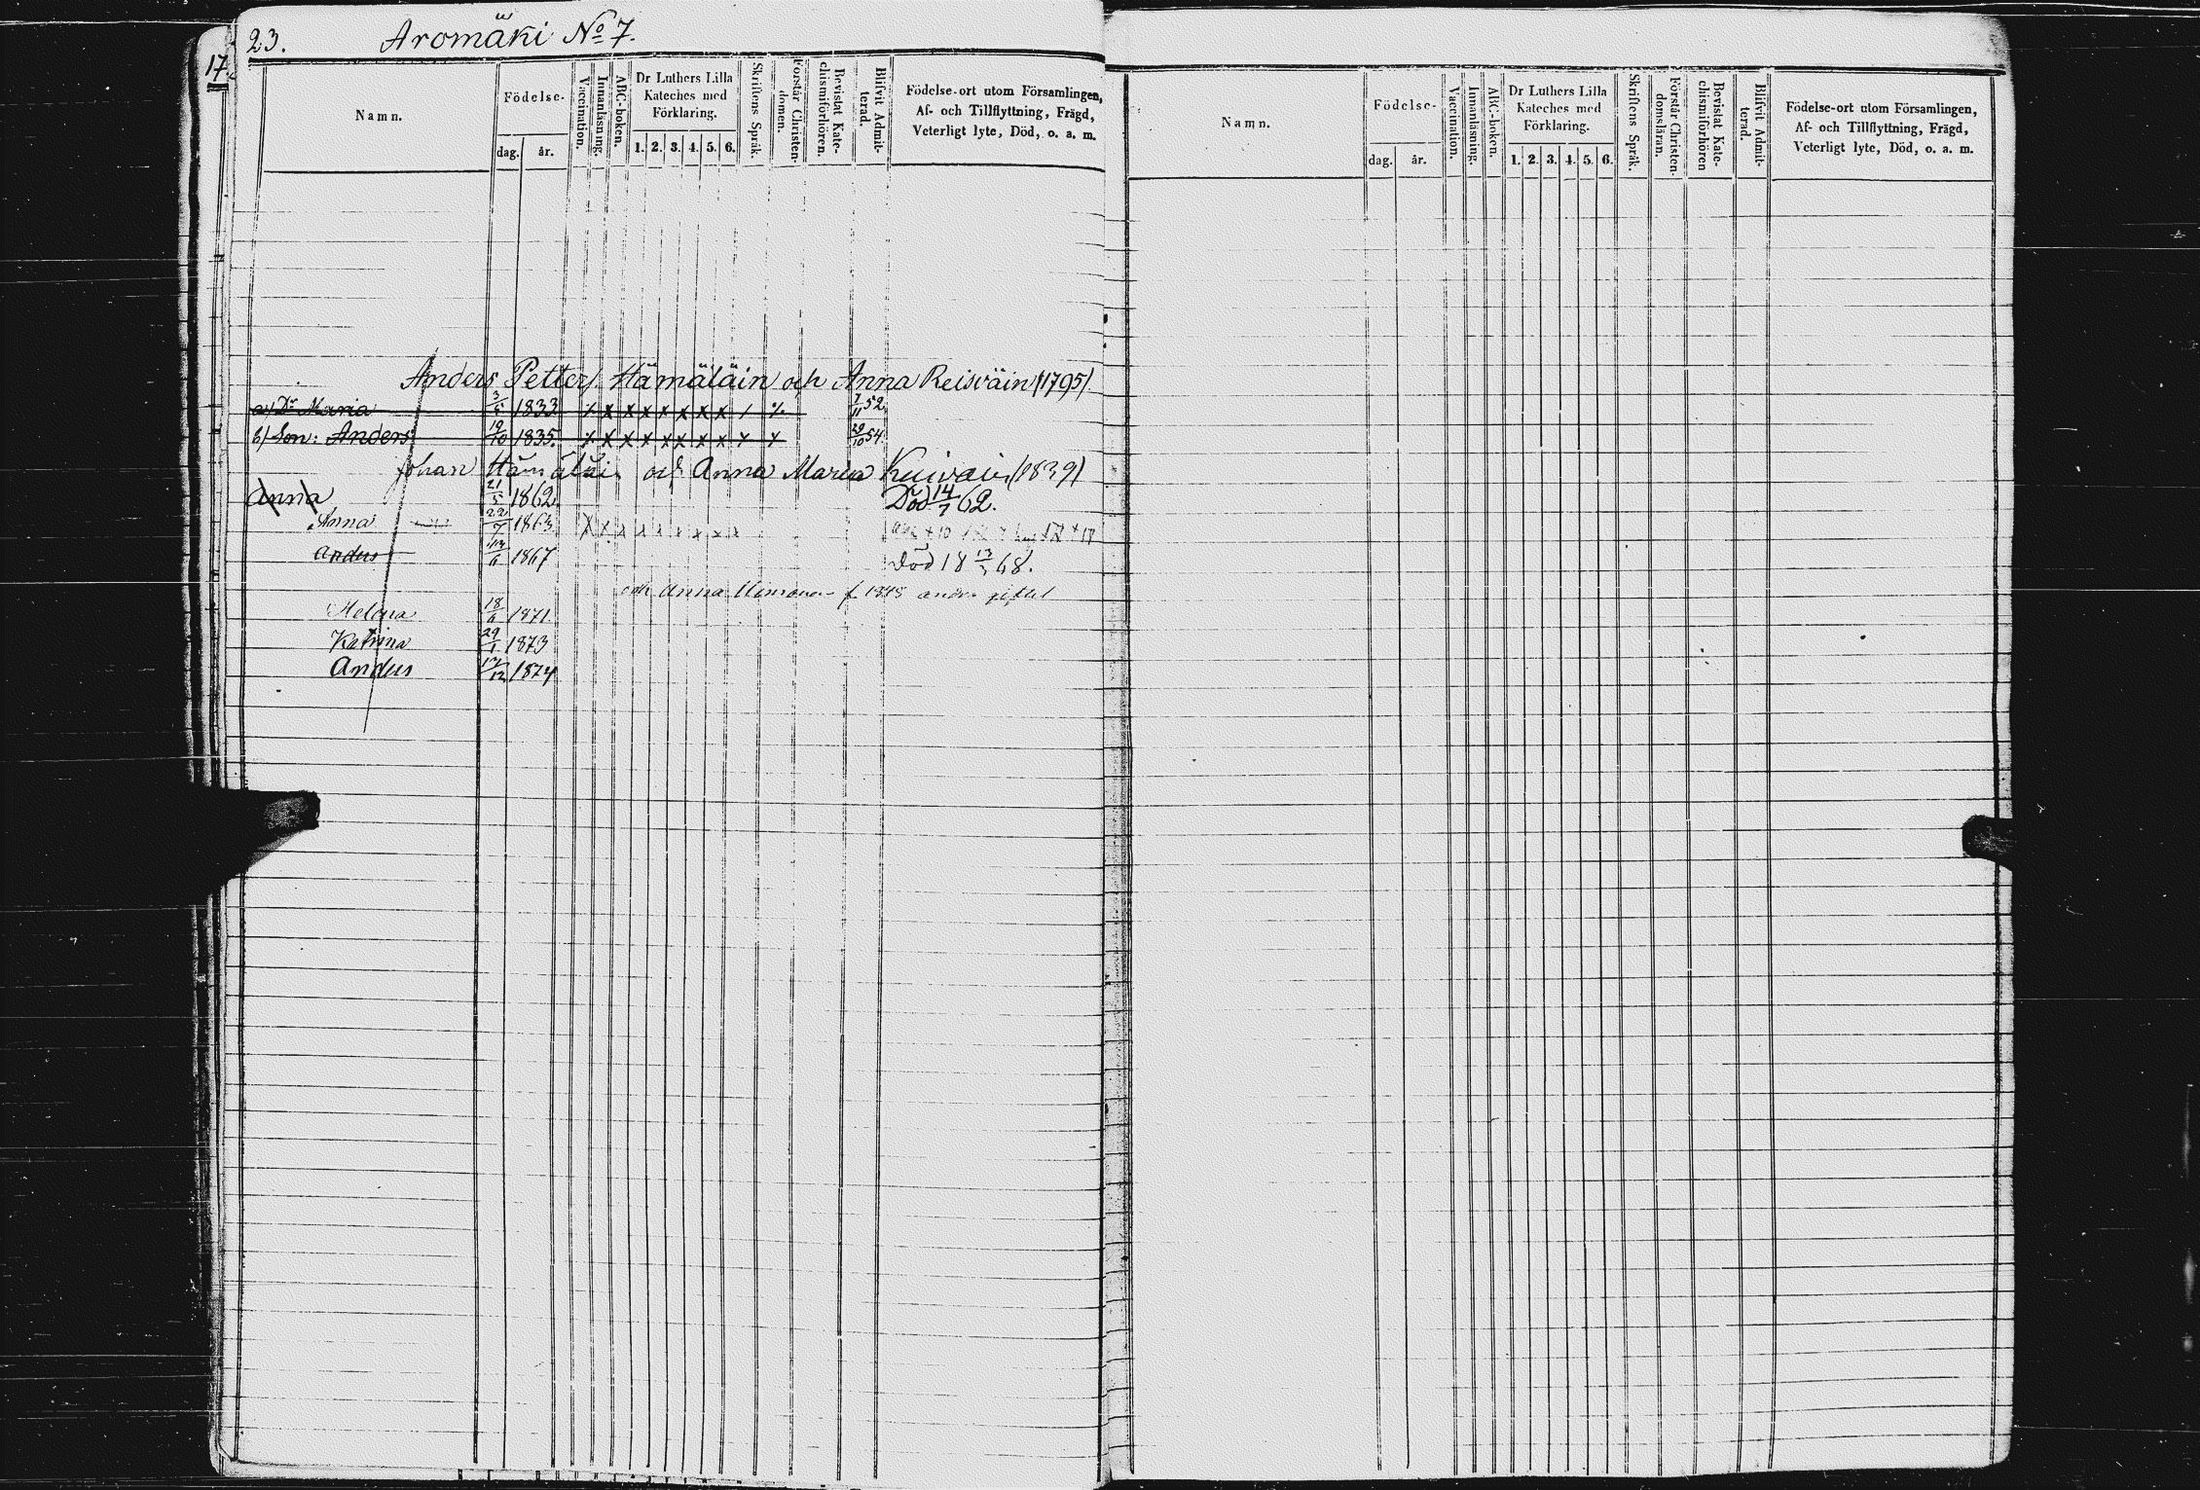 23. Aromäki No 7.
17.
Namn.
Födelse-
dag. år.
Vaccination.
Innanläsning.
ABC-boken.
Dr Luthers Lilla Kateches med Förklaring.
1. 2. 3. 4. 5. 6.
Skriftens Språk.
Förstår Christen-domen.
Bevistat Kate-chismiförhören.
Blifvit Admit-terad.
Födelse-ort utom Församlingen,
Af- och Tillflyttning, Frägd,
Veterligt lyte, Död, o. a. m.
Anders Petter Hämäläin och Anna Reisväin (1795)
a) Dr Maria 3/5 1833 x x x x x x x x 7/11 52
b) Son: Anders 19/10 1835. x x x x x x x x x x 29/10 54.
Johan Hämäläi och Anna Maria (1839)
Anna 21/5 1862 Död 14/7 62.
Anna 22/7 1863 x x x x x x x x x
Anders 1867 Död 18 68.
och Anna f 1848 andra giftet
Helena 18/6 1871.
Katrina 29/1 1873
Anders 1874
Namn.
Födelse-
dag. år.
Vaccination.
Innanläsning.
ABC-boken.
Dr Luthers Lilla Kateches med Förklaring.
1. 2. 3. 4. 5. 6.
Skriftens Språk.
Förstår Christen-domsläran.
Bevistat Kate-chismiförhören
Blifvit Admit-terad.
Födelse-ort utom Församlingen,
Af- och Tillflyttning, Frägd,
Veterligt lyte, Död, o. a. m.